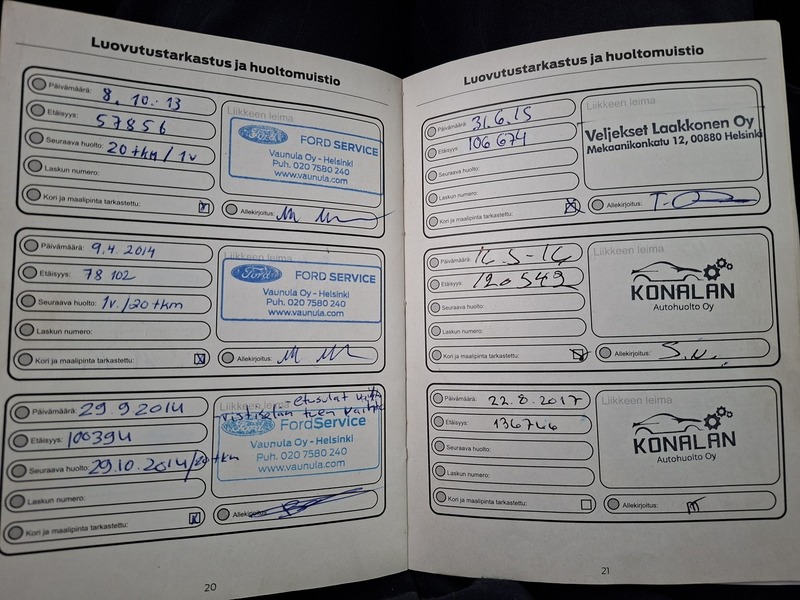 Luovutustarkastus ja huoltomuistio
Päivämäärä: 8. 10. 13
Etäisyys: 57856
Seuraava huolto: 20 tkm / 1v
Laskun numero:
Kori ja maalipinta tarkastettu:
Liikkeen leima
Ford FORD SERVICE
Vaunula Oy - Helsinki
Puh. 020 7580 240
www.vaunula.com
Allekirjoitus:
Päivämäärä: 9.4. 2014
Etäisyys: 78 102
Seuraava huolto: 1v./20 tkm
Laskun numero:
Kori ja maalipinta tarkastettu:
Liikkeen leima
Ford FORD SERVICE
Vaunula Oy - Helsinki
Puh. 020 7580 240
www.vaunula.com
Allekirjoitus:
Päivämäärä: 29.9 2014
Etäisyys: 100394
Seuraava huolto: 29.10.2014/20 tkm
Laskun numero:
Kori ja maalipinta tarkastettu:
Liikkeen leima
- etusulat
Ford FordService
Vaunula Oy - Helsinki
Puh. 020 7580 240
www.vaunula.com
Allekirjoitus:
20
Luovutustarkastus ja huoltomuistio
Päivämäärä: 31.6.15
Etäisyys: 106 674
Seuraava huolto:
Laskun numero:
Kori ja maalipinta tarkastettu:
Liikkeen leima
Veljekset Laakkonen Oy
Mekaanikonkatu 12, 00880 Helsinki
Allekirjoitus:
Päivämäärä:
Etäisyys: 120549
Seuraava huolto:
Laskun numero:
Kori ja maalipinta tarkastettu:
Liikkeen leima
KONALAN
Autohuolto Oy
Allekirjoitus: S.N.
Päivämäärä: 22.8.2017
Etäisyys: 136746
Seuraava huolto:
Laskun numero:
Kori ja maalipinta tarkastettu:
Liikkeen leima
KONALAN
Autohuolto Oy
Allekirjoitus:
21